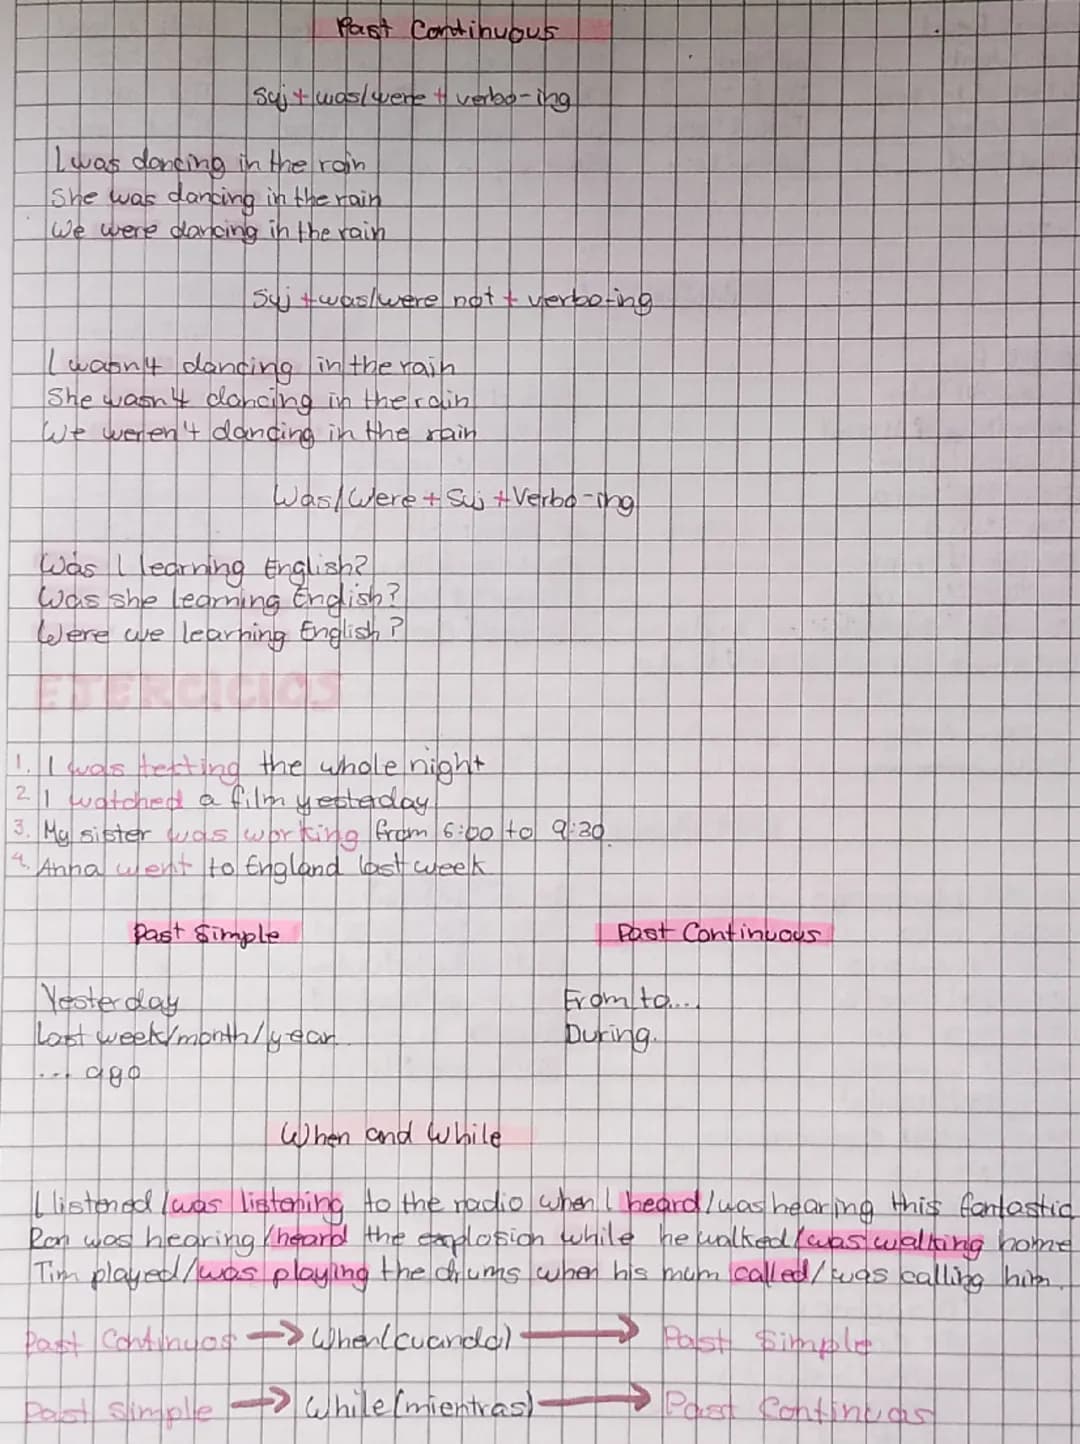 Past Continuous
Suj + was/were + verbo-ing
I was dancing in the rain
She was dancing in the rain
We were dancing in the rain
Suj + was/were not + verbo-ing
I wasn't dancing in the rain
She wasn't dancing in the rain
We weren't dancing in the rain
Was/Were + Suj + Verbo-ing
Was I learning English?
Was she learning English?
Were we learning English?
EJERCICIOS
1. I was texting the whole night
2. I watched a film yesterday
3. My sister was working from 6:00 to 9:30.
4. Anna went to England last week
Past Simple Past Continuous
Yesterday From to....
Last week/month/year During.
... ago
When and While
I listened/was listening to the radio when I heard/was hearing this fantastic
Ron was hearing/heard the explosion while he walked/was walking home
Tim played/was playing the drums when his mum called/was calling him.
Past Continuos → When(cuando) → Past Simple
Past Simple → While(mientras) → Past Continuos